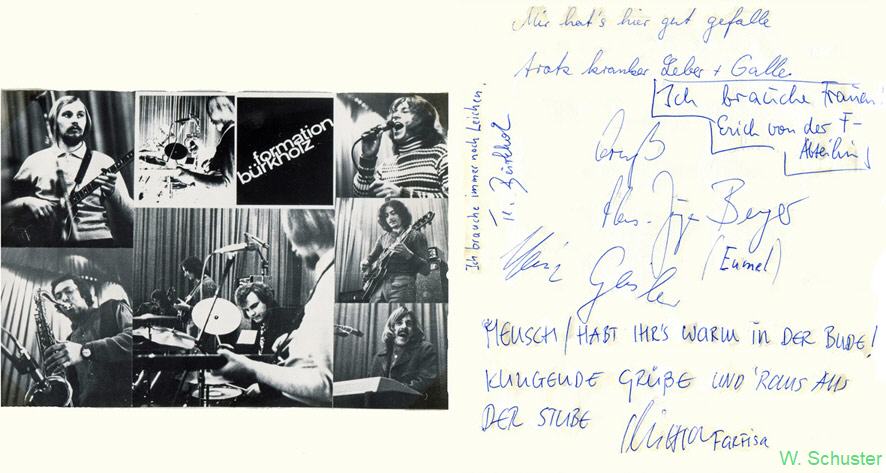 formation
bürkholz
Mir hat's hier gut gefalle
trotz kranker Leber + Galle
Ich brauche Frauen!
Erich von der F-
Abteilung
Ich brauche immer noch Leichen.
Gruß
Hans-Jürgen Beyer
(Eumel)
Heinz Geisler
MENSCH, HABT IHR'S WARM IN DER BUDE!
KLINGENDE GRÜßE UND 'RAUS AUS
DER STUBE
FARFISA
W. Schuster